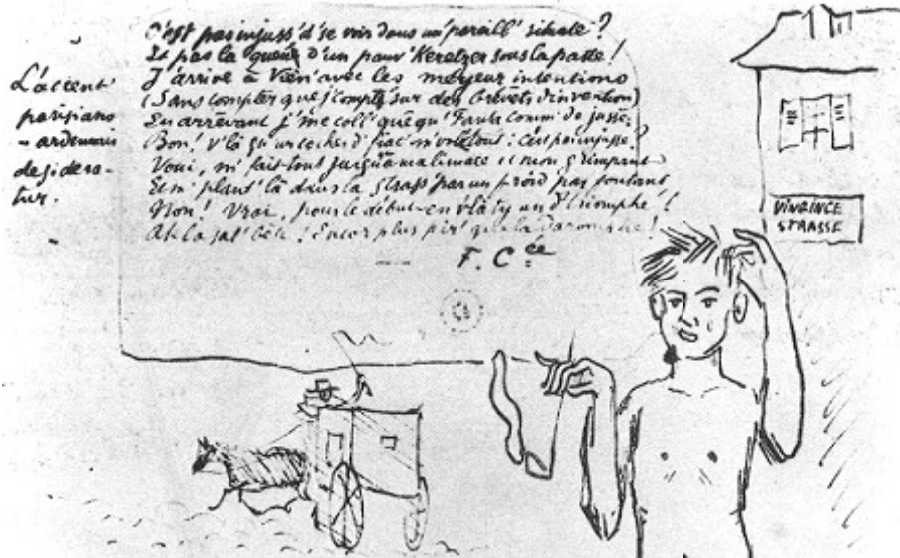 L'accent
parisiano
-ardennais
desidera-
tur.
C'est pas injuss' d'se voir dans un' pareill' situate ?
Et pas la queue d'un pauv' Keretzer sous la patte !
J'arrive à Vien' avec les meyeur intentions
(Sans compter que j'compte sur des brevets d'invention)
En arrêvant j'me coll' quéqu' Fanta comm' de jusse.
Bon ! V'là qu'un cocher d'fiac' m'vol' tout : c'est pas injusse ?
Voui, m'fait tout jusqu'à ma limace et mon grimpant
Et m'plant' là dans la Strass par un froid pas foutant
Non ! Vrai, pour le début en v'là ty un d'triomphe !
Ah la sal' bête ! Encor plus pir' que la Daromphe !
F. C ée
VINGINCE
STRASSE